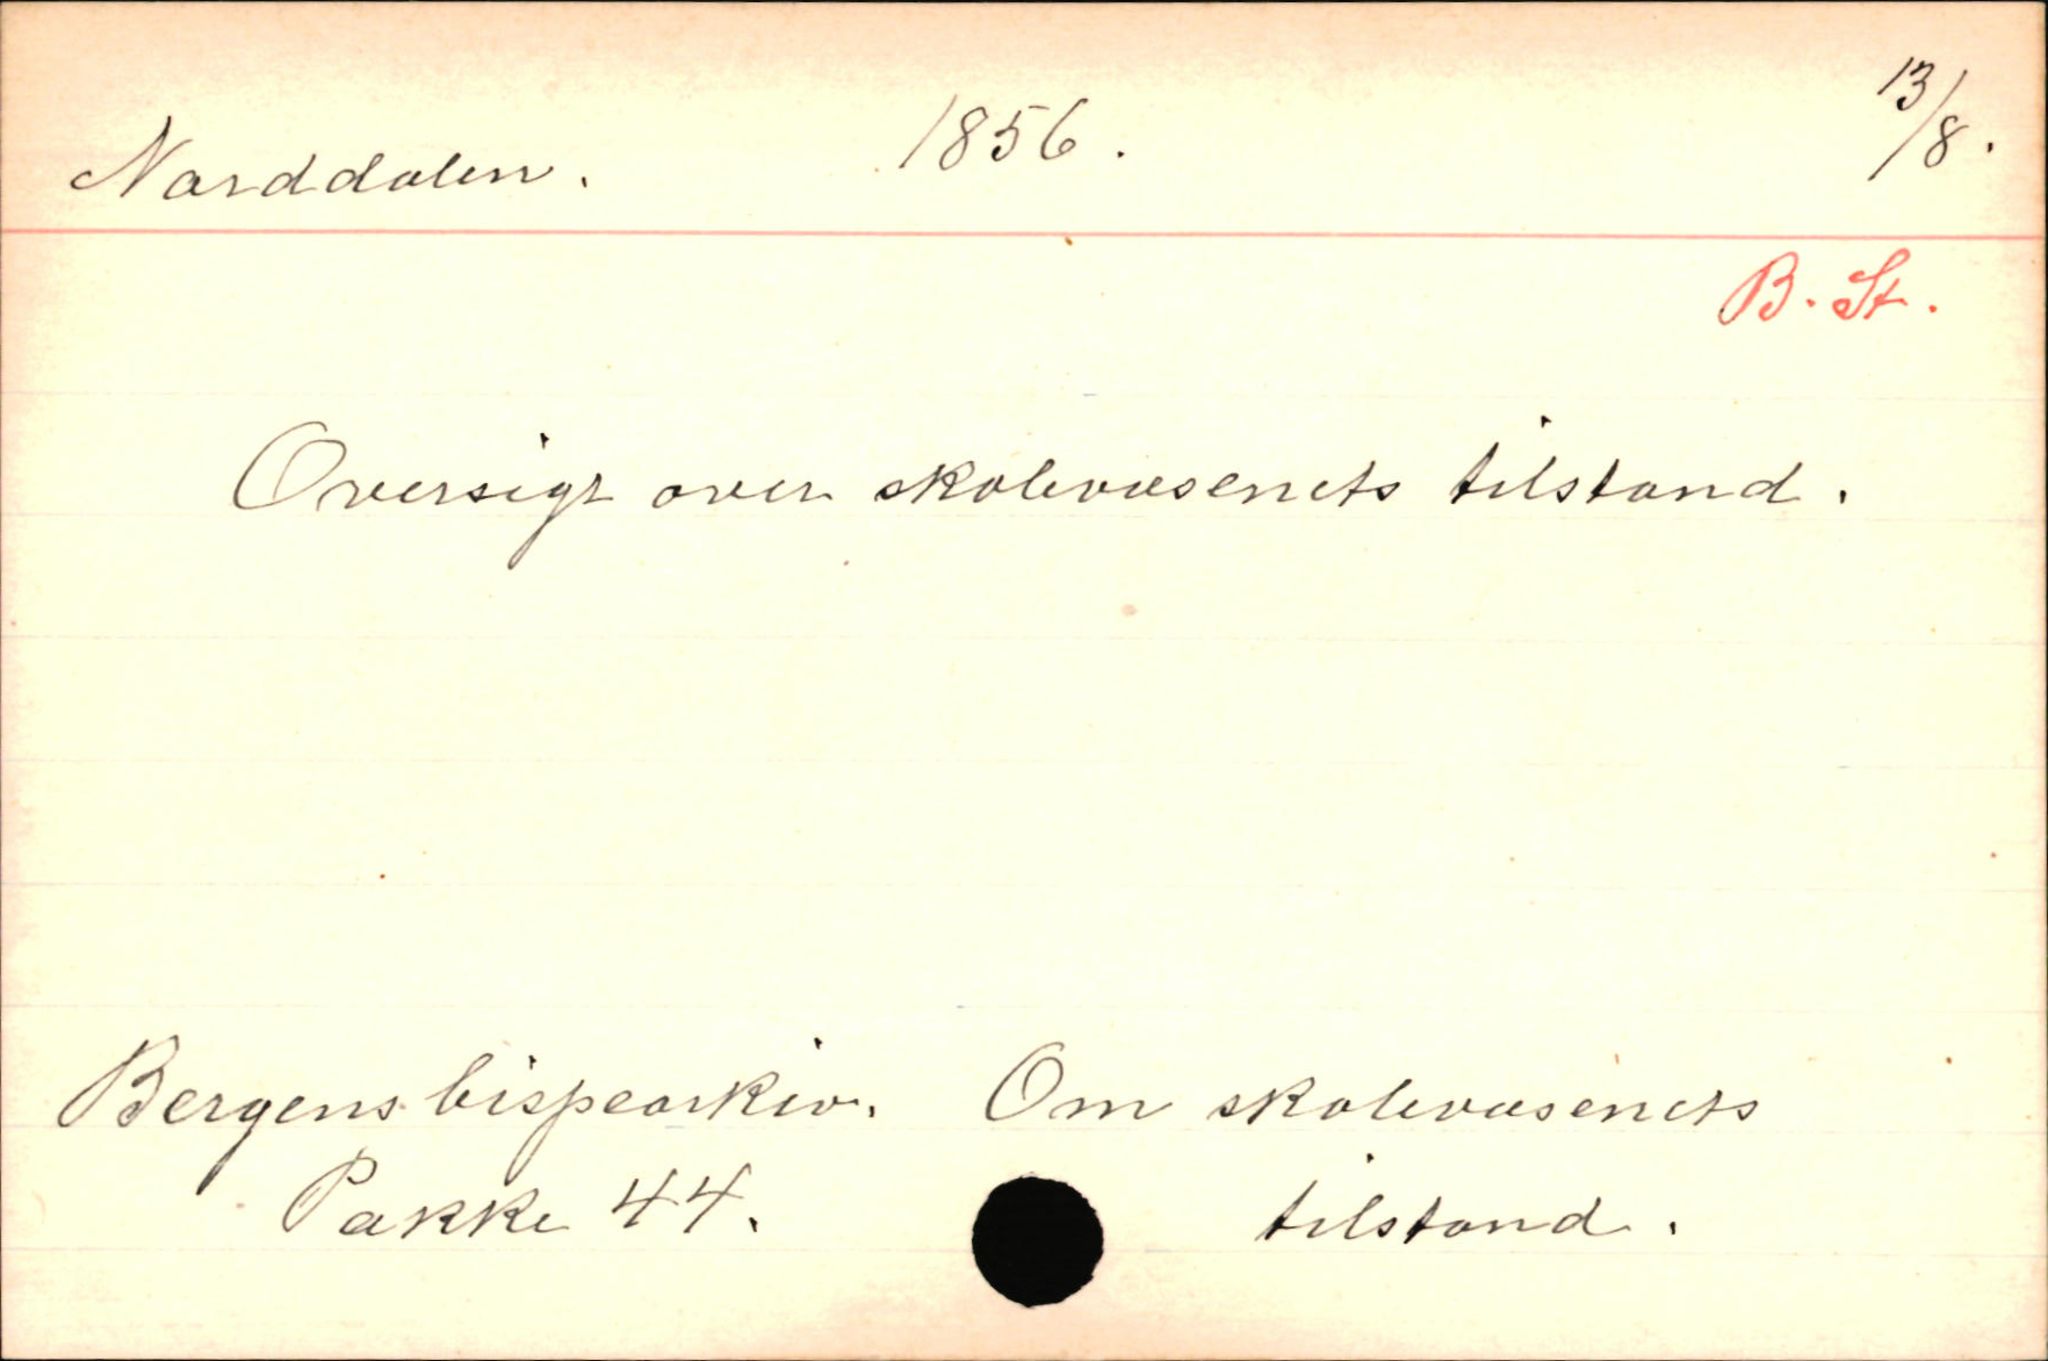 Norddalen. 1856. 13/8.
B. St.
Oversigt over skolevæsenets tilstand.
Bergens bispearkiv. Om skolevæsenets
Pakke 44. tilstand.